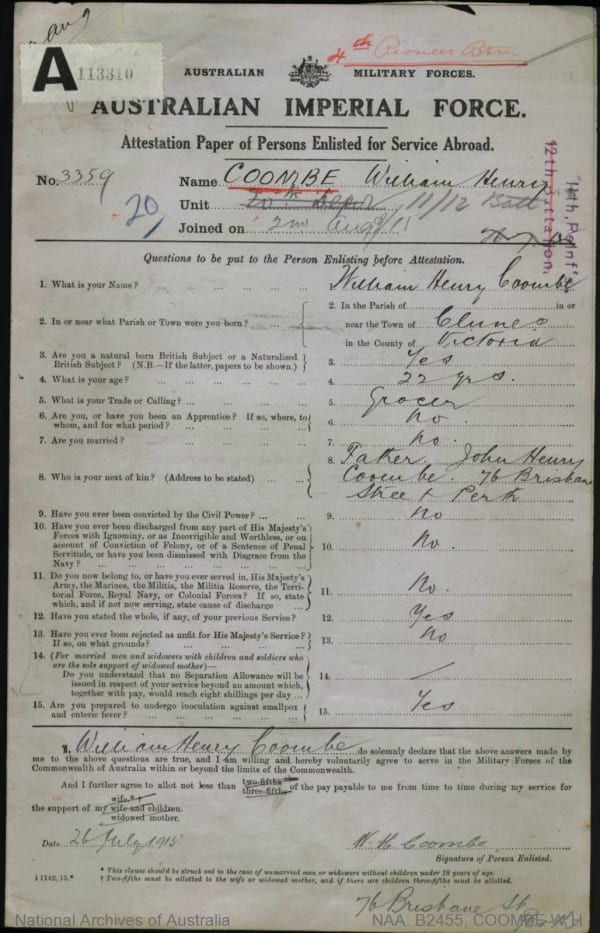 4th Pioneer Btn.
A 113310
AUSTRALIAN MILITARY FORCES.
AUSTRALIAN IMPERIAL FORCE.
Attestation Paper of Persons Enlisted for Service Abroad.
No. 3359 Name COOMBE William Henry
20 Unit 11/12 Batt
Joined on 2nd Aug 15
12th Battalion.
Questions to be put to the Person Enlisting before Attestation.
1. What is your Name? ... William Henry Coombe
2. In or near what Parish or Town were you born? ... 2. In the Parish of in or
near the Town of Clunes
in the County of Victoria
3. Are you a natural born British Subject or a Naturalised
British Subject? (N.B.—If the latter, papers to be shown.) 3. Yes
4. What is your age? ... 4. 22 yrs.
5. What is your Trade or Calling? ... 5. Grocer
6. Are you, or have you been an Apprentice? If so, where, to
whom, and for what period? ... 6. No.
7. Are you married? ... 7. No.
8. Who is your next of kin? (Address to be stated) ... 8. Father John Henry
Coombe. 76 Brisbane
Street Perth
9. Have you ever been convicted by the Civil Power? ... 9. No
10. Have you ever been discharged from any part of His Majesty's
Forces with Ignominy, or as Incorrigible and Worthless, or on
account of Conviction of Felony, or of a Sentence of Penal
Servitude, or have you been dismissed with Disgrace from the
Navy? ... 10. No.
11. Do you now belong to, or have you ever served in, His Majesty's
Army, the Marines, the Militia, the Militia Reserve, the Terri-
torial Force, Royal Navy, or Colonial Forces? If so, state
which, and if not now serving, state cause of discharge 11. No.
12. Have you stated the whole, if any, of your previous Service? 12. Yes
13. Have you ever been rejected as unfit for His Majesty's Service?
If so, on what grounds? ... 13. No
14. (For married men and widowers with children and soldiers who
are the sole support of widowed mother)—
Do you understand that no Separation Allowance will be
issued in respect of your service beyond an amount which,
together with pay, would reach eight shillings per day ... 14. /
15. Are you prepared to undergo inoculation against smallpox
and enteric fever? ... 15. Yes
I, William Henry Coombe do solemnly declare that the above answers made by
me to the above questions are true, and I am willing and hereby voluntarily agree to serve in the Military Forces of the
Commonwealth of Australia within or beyond the limits of the Commonwealth.
And I further agree to allot not less than two-fifths three-fifths of the pay payable to me from time to time during my service for
the support of my wife*† wife and children. widowed mother.
Date 26 July 1915 W. H. Coombe
Signature of Person Enlisted.
* This clause should be struck out in the case of unmarried men or widowers without children under 18 years of age.
† Two-fifths must be allotted to the wife or widowed mother, and if there are children three-fifths must be allotted.
11142, 15.*
76 Brisbane St
National Archives of Australia NAA: B2455, COOMBE W H